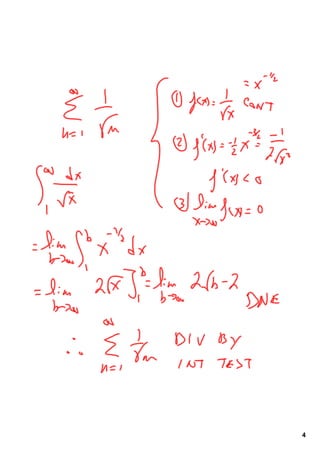 ∞
Σ 1/√n
n=1
① f(x) = 1/√x = x^(-1/2) CONT
② f'(x) = -1/2 x^(-3/2) = -1/(2√x³)
f'(x) < 0
③ lim f(x) = 0
x→∞
∫₁^∞ dx/√x
= lim ∫₁^b x^(-1/2) dx
b→∞
= lim 2√x ]₁^b = lim 2√b - 2 DNE
b→∞ b→∞
∞
∴ Σ 1/√n DIV BY
n=1 INT TEST
4